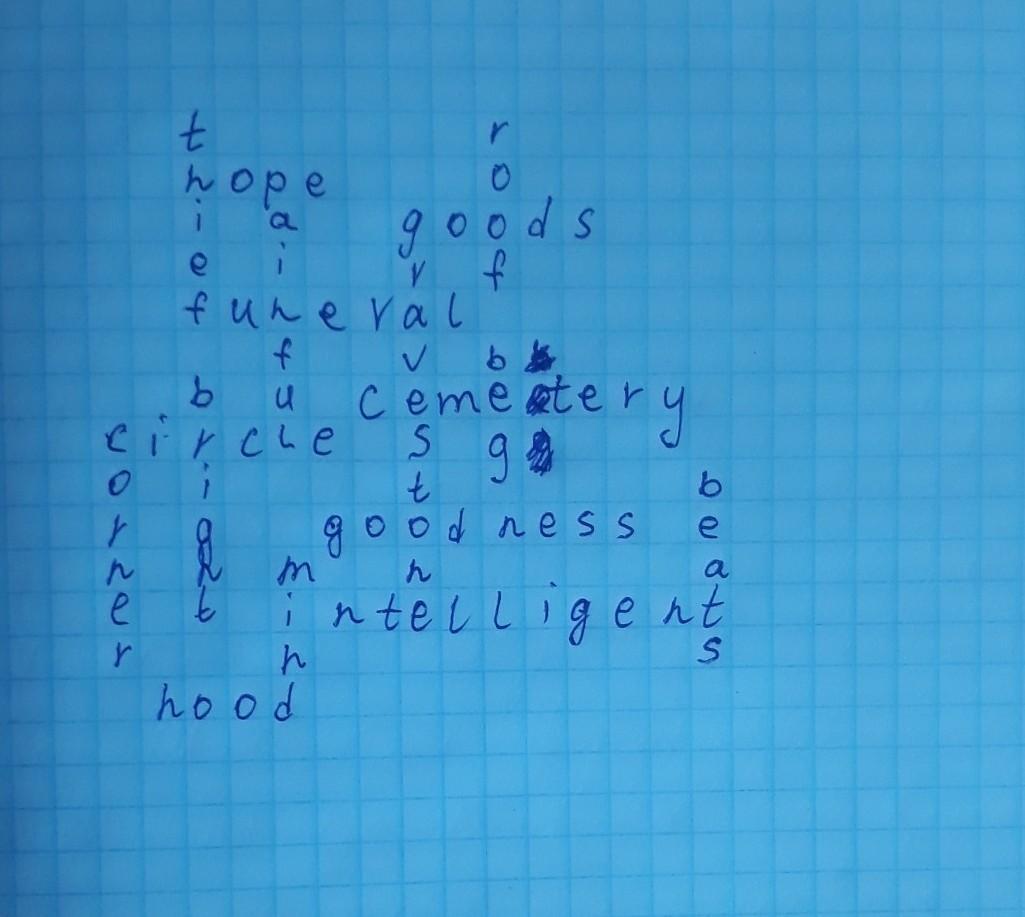 t r
hope o
i a goods
e i r f
funeral
f v b
b u cemetery
circle s g
o i t b
r g goodness e
n h m n a
e t intelligent
r n s
hood